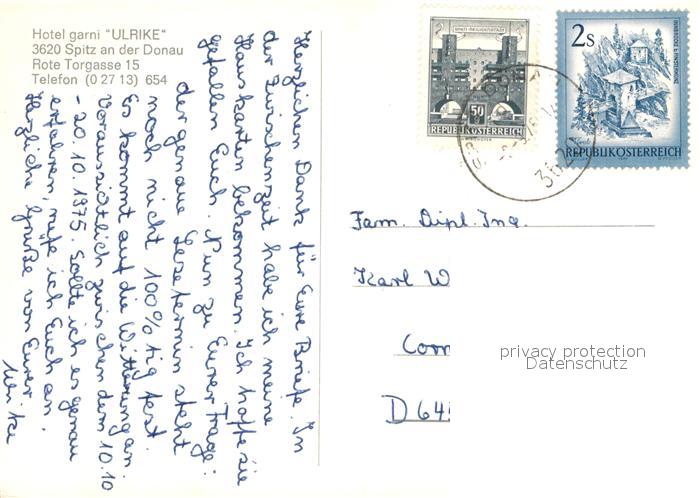 Hotel garni "ULRIKE"
3620 Spitz an der Donau
Rote Torgasse 15
Telefon (0 27 13) 654
Herzlichen Dank für Eure Briefe. In
der Zwischenzeit habe ich meine
Hauskarten bekommen. Ich hoffe sie
gefallen Euch. Nun zu Eurer Frage:
der genaue Lesetermin steht
noch nicht 100%tig fest.
Es kommt auf die Witterung an.
Voraussichtlich zwischen dem 10.10
- 20.10.1975. Sollte ich es genau
erfahren, rufe ich Euch an.
Herzliche Grüße von Eurer
Ulrike
50
REPUBLIK ÖSTERREICH
2s
REPUBLIK ÖSTERREICH
3620
Fam. Dipl. Ing.
Karl W
Com
D 64
privacy protection
Datenschutz